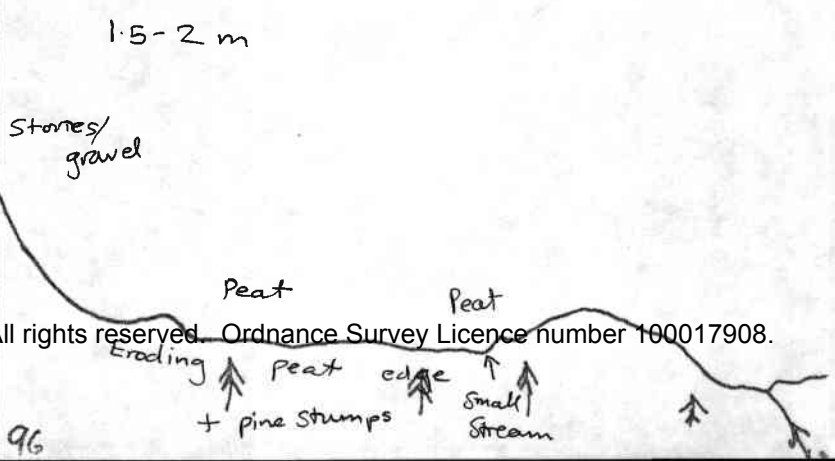 1.5-2 m
Stones/
gravel
Peat
Peat
All rights reserved. Ordnance Survey Licence number 100017908.
Eroding peat edge
+ pine stumps
Small
Stream
96